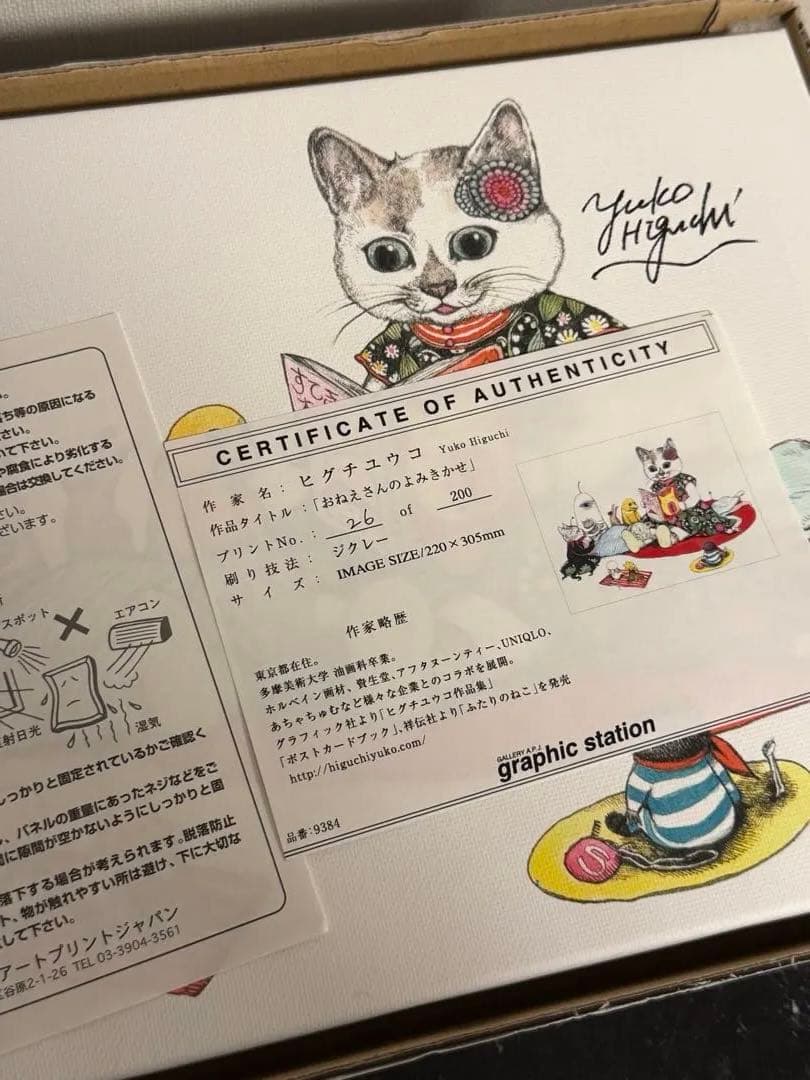 Yuko
Higuchi
すてき
CERTIFICATE OF AUTHENTICITY
作家名：ヒグチユウコ Yuko Higuchi
作品タイトル：「おねえさんのよみきかせ」
プリントNo.： 26 of 200
刷り技法：ジクレー
サイズ： IMAGE SIZE/220×305mm
作家略歴
東京都在住。
多摩美術大学 油画科卒業。
ホルベイン画材、資生堂、アフタヌーンティー、UNIQLO、
あちゃちゅむなど様々な企業とのコラボを展開。
グラフィック社より「ヒグチユウコ作品集」
「ポストカードブック」、祥伝社より「ふたりのねこ」を発売
http://higuchiyuko.com/
GALLERY A.P.J.
graphic station
品番：9384
ち等の原因になる
さい。
いて下さい。
や腐食により劣化する
場合は交換してください。
さい。
ざいます。
スポット
エアコン
射日光
湿気
しっかりと固定されているかご確認く
、パネルの重量にあったネジなどをご
間に隙間が空かないようにしっかりと固
落下する場合が考えられます。脱落防止
ト、物が触れやすい所は避け、下に大切な
して下さい。
アートプリントジャパン
谷原2-1-26 TEL 03-3904-3561